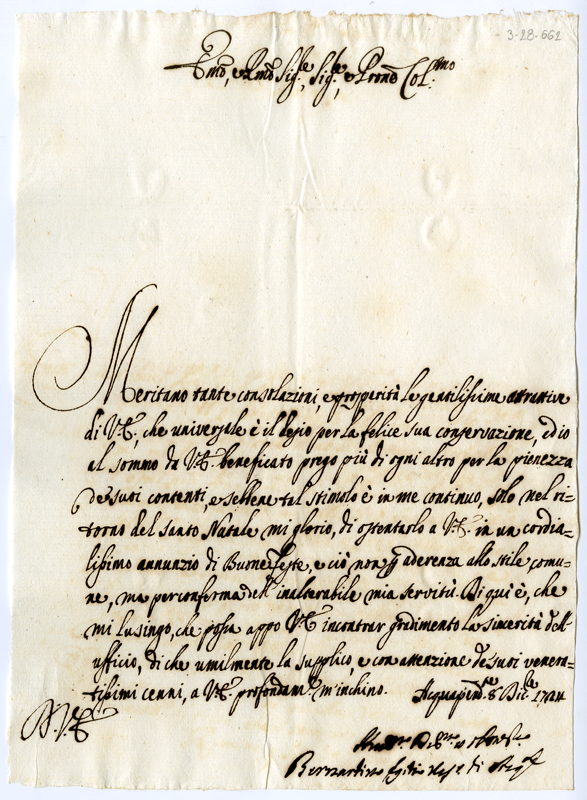 3-28-662
Emo, e Rmo Sigre, Sigre, e Prone Col:mo
Meritano tante consolazioni, e prosperità le gentilissime attrattive
di V.E., che universale è il desio per la felice sua conservazione, ed io
al sommo da V.E. beneficato prego più di ogni altro per la pienezza
de suoi contenti, e sebbene tal stimolo è in me continuo, solo nel ri=
torno del santo Natale mi glorio, di ostentarlo a V.E. in un cordia=
lissimo annunzio di Buone feste, e ciò non p aderenza allo stile comu=
ne, ma per conferma dell' inalterabile mia servitù. Di qui è, che
mi lusingo, che possa appo V.E. incontrar gradimento la sincerità dell'
ufficio, di che umilmente la supplico, e con attenzione de suoi venera=
tissimi cenni, a V.E. profondamte m'inchino. Acquapendte 8 Dice
V.E.
Bernardino Egidio di